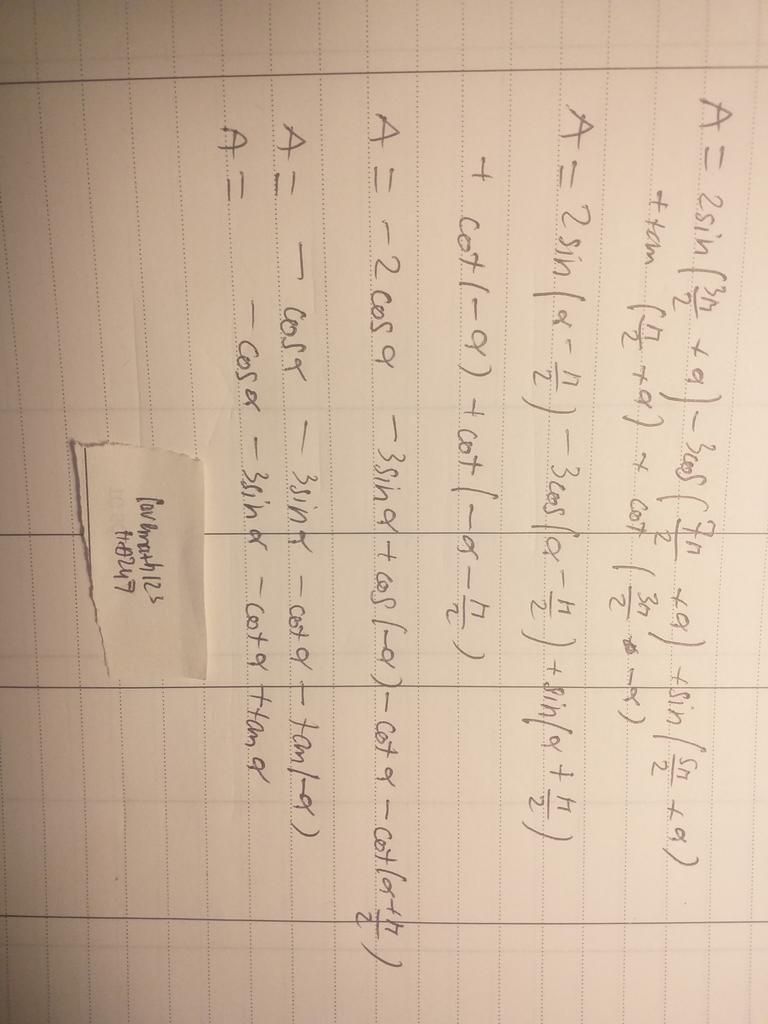 A = 2sin(3π/2 + α) - 3cos(7π/2 + α) + sin(5π/2 + α)
+ tan(π/2 + α) + cot(3π/2 - α)
A = 2sin(α - π/2) - 3cos(α - π/2) + sin(α + π/2)
+ cot(-α) + cot(-α - π/2)
A = -2cosα - 3sinα + cos(-α) - cotα - cot(α + π/2)
A = - cosα - 3sinα - cotα - tan(-α)
A = - cosα - 3sinα - cotα + tanα
lovemath123